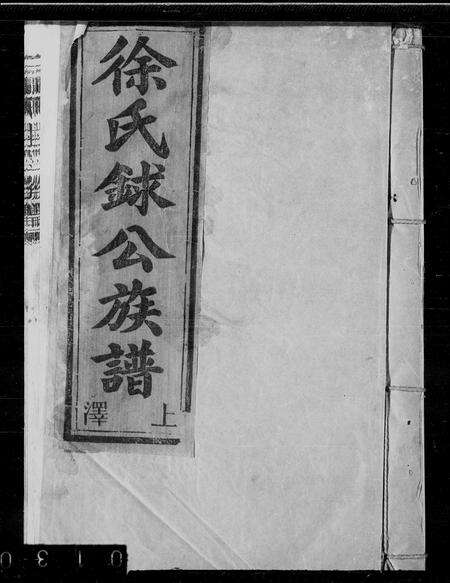 徐氏銶公族譜
上
澤
0 1 3 0